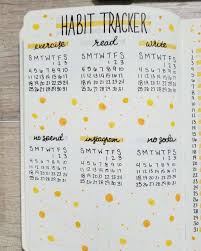 HABIT TRACKER
exercise read write
SMTWTFS SMTWTFS SMTWTFS
1 2 3 1 2 3 1 2 3
4 5 6 7 8 9 10 4 5 6 7 8 9 10 4 5 6 7 8 9 10
11 12 13 14 15 16 17 11 12 13 14 15 16 17 11 12 13 14 15 16 17
18 19 20 21 22 23 24 18 19 20 21 22 23 24 18 19 20 21 22 23 24
25 26 27 28 29 30 31 25 26 27 28 29 30 31 25 26 27 28 29 30 31
no spend instagram no soda
SMTWTFS SMTWTFS SMTWTFS
1 2 3 1 2 3 1 2 3
4 5 6 7 8 9 10 4 5 6 7 8 9 10 4 5 6 7 8 9 10
11 12 13 14 15 16 17 11 12 13 14 15 16 17 11 12 13 14 15 16 17
18 19 20 21 22 23 24 18 19 20 21 22 23 24 18 19 20 21 22 23 24
25 26 27 28 29 30 31 25 26 27 28 29 30 31 25 26 27 28 29 30 31